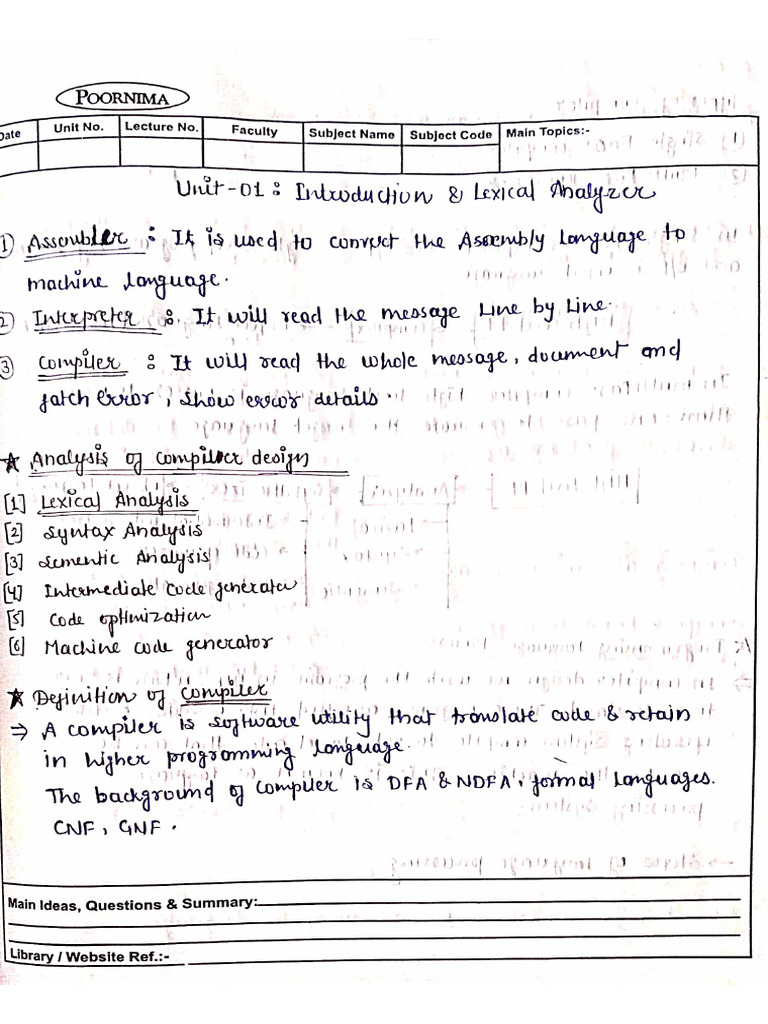 POORNIMA
Date Unit No. Lecture No. Faculty Subject Name Subject Code Main Topics:-
Unit-01: Introduction & Lexical Analyzer
1 Assembler : It is used to convert the Assembly Language to
machine Language.
2 Interpreter : It will read the message Line by Line.
3 Compiler : It will read the whole message, document and
fatch error, show error details.
★ Analysis of Compiler design
[1] Lexical Analysis
[2] Syntax Analysis
[3] Sementic Analysis
[4] Intermediate Code generator
[5] Code optimization
[6] Machine code generator
★ Definition of Compiler
⇒ A compiler is software utility that translate code & retain
in higher programming language.
The background of Compiler is DFA & NDFA, formal languages.
CNF, GNF.
Main Ideas, Questions & Summary:
Library / Website Ref.:-